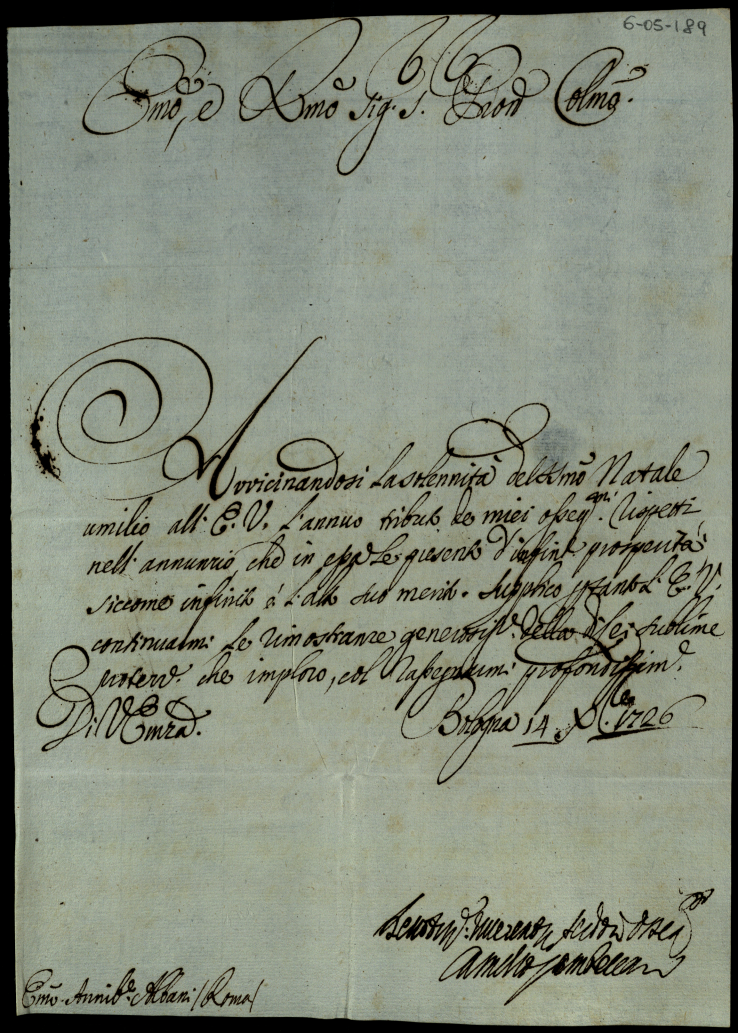 6-05-189
Emo, e Rmo Sig. S. Pron Colmo.
Avvicinandosi la solennità del Smo Natale
umilio all' E. V. l'annuo tributo de miei osseq.mi rispetti
nell' annunzio, che in esso le presento d'infinite prosperità
siccome infinito è l'alto suo merito. Supplico pertanto l' E. V.
continuarmi le rimostranze generosiss.e della di lei sublime
proten.e che imploro, col rassegnarmi profondissim.e
Di V Emza.
Bologna 14 Xbre 1726
Umo Devotiss.
Emo. Annib.e Albani / Roma /